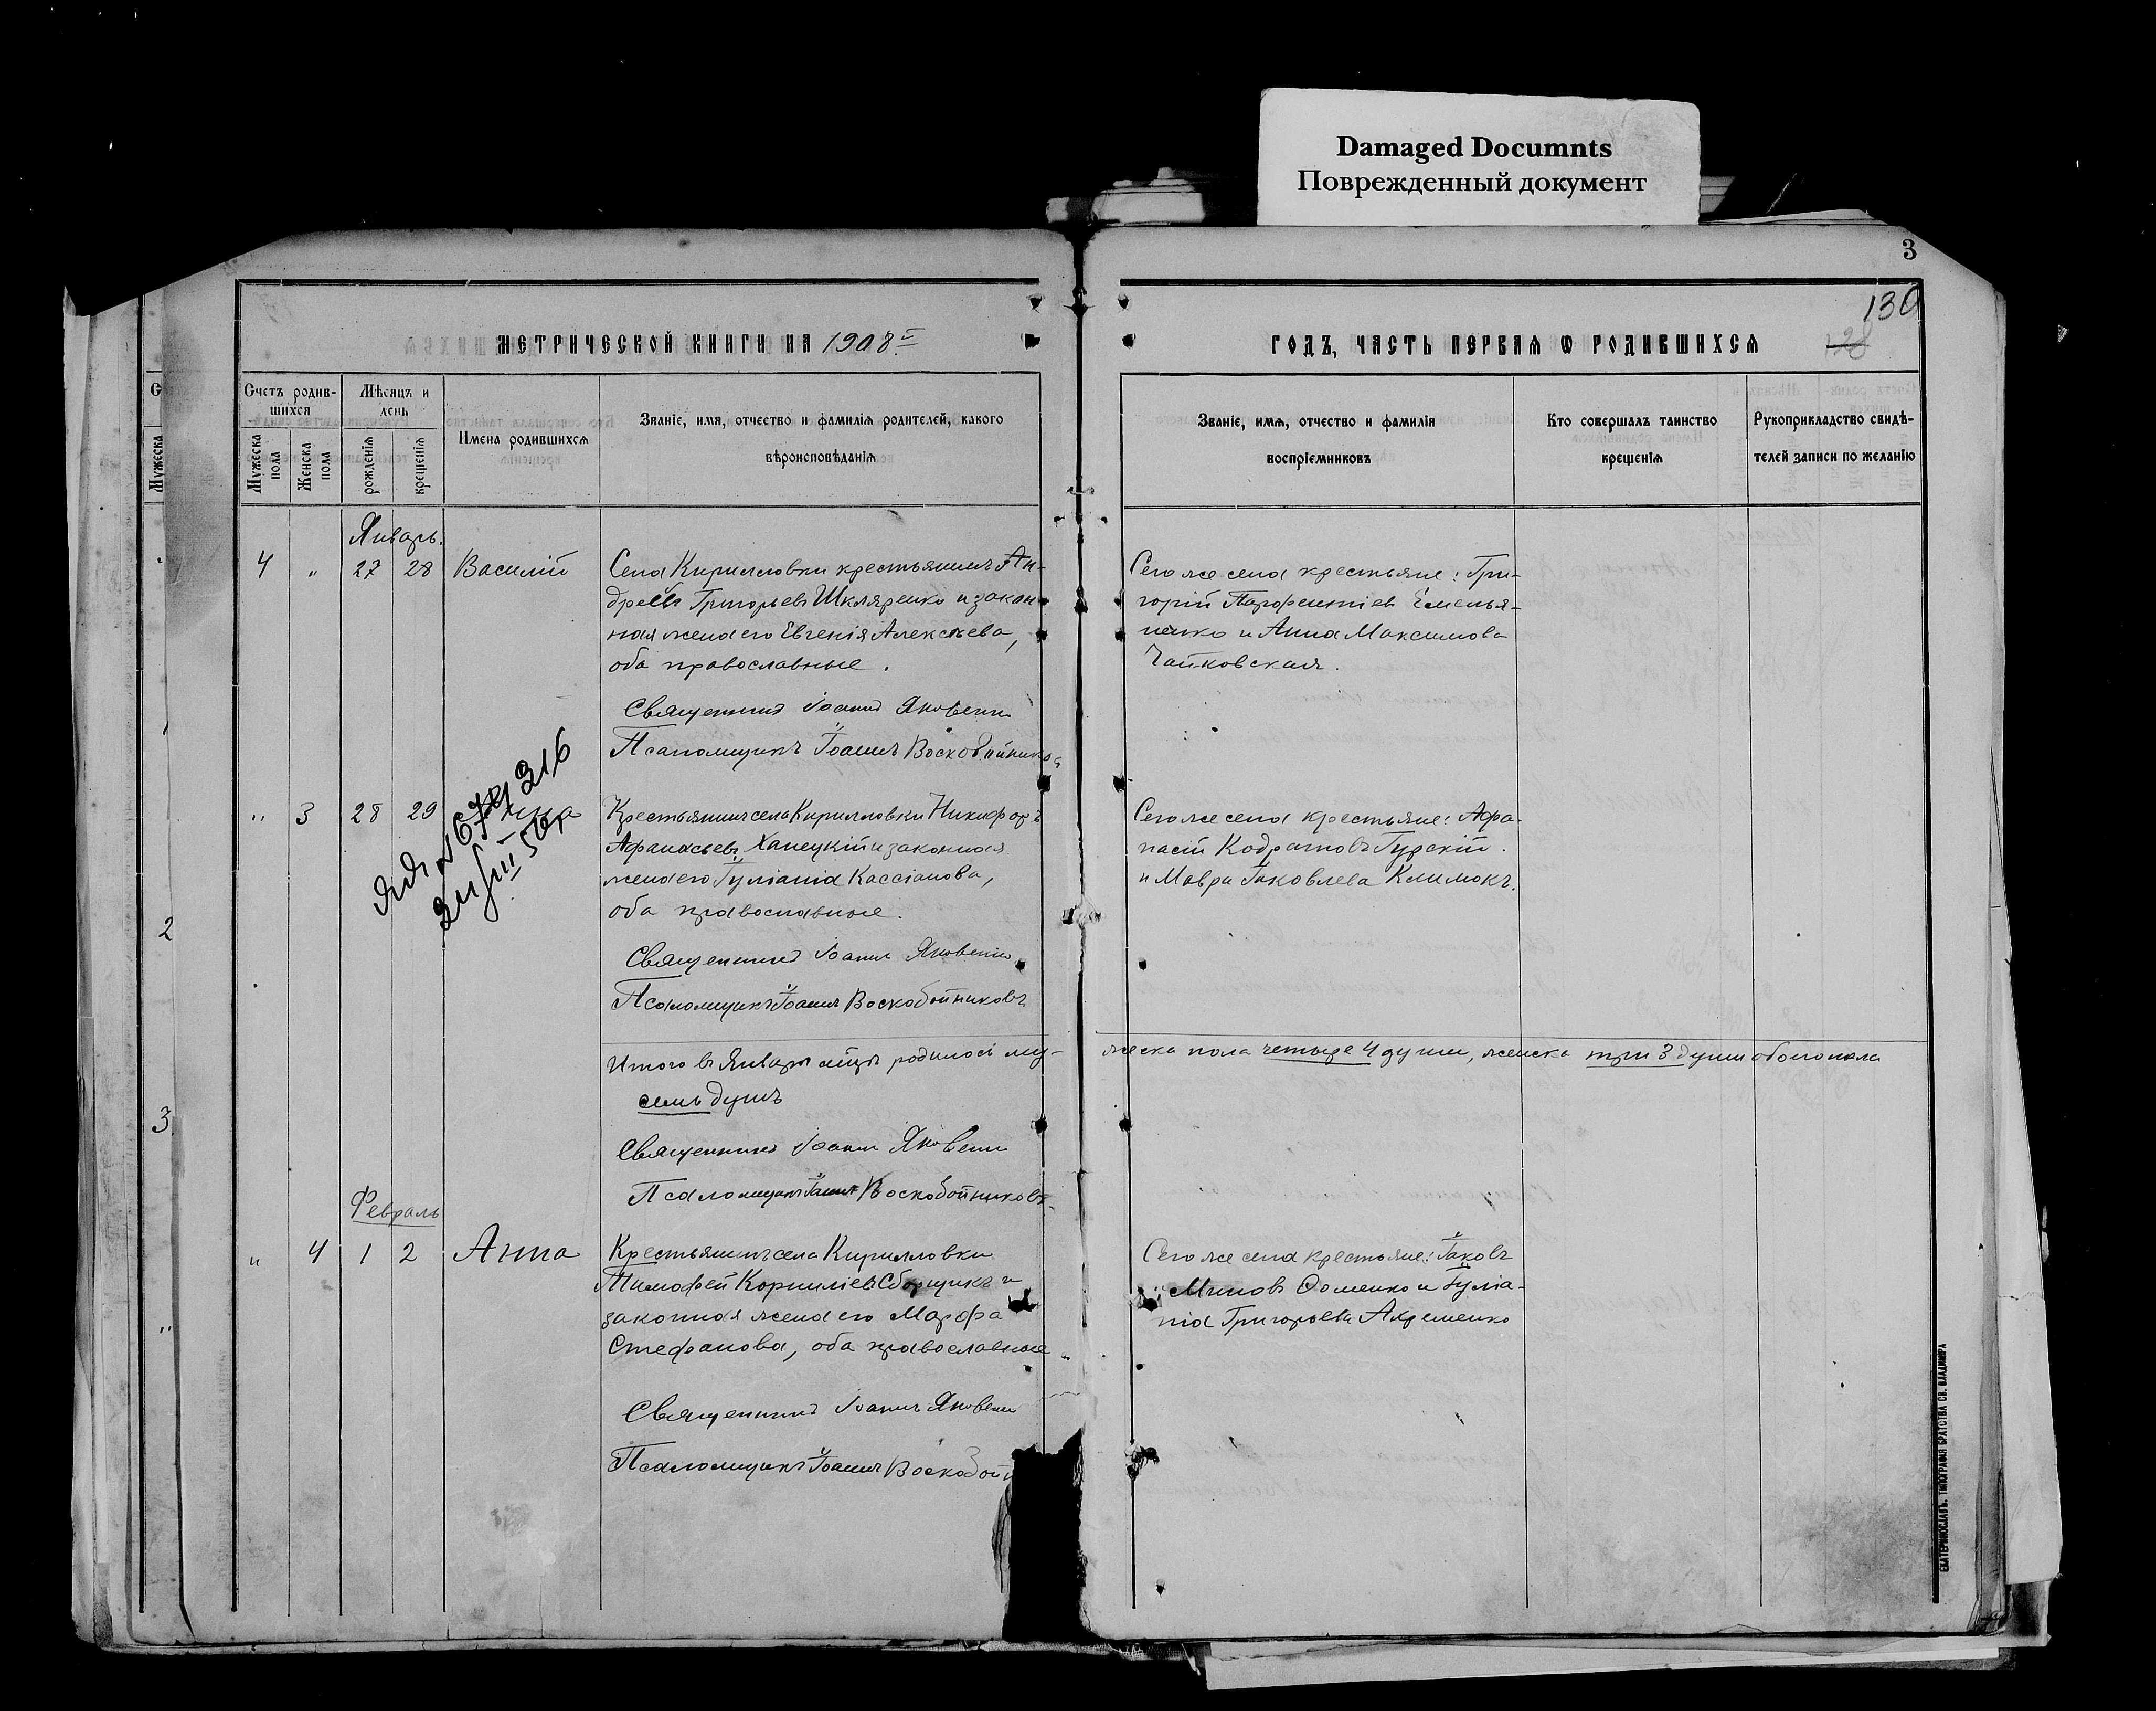 Damaged Documnts
Поврежденный документ
3
130
28
МЕТРИЧЕСКОЙ КНИГИ НА 1908 г.
ГОДЪ, ЧАСТЬ ПЕРВАЯ Ѡ РОДИВШИХСЯ
Счетъ родив-
шихся
Мужеска
пола
Женска
пола
Мѣсяцъ и
день
рожденія
крещенія
Имена родившихся
Званіе, имя, отчество и фамилія родителей, какого
вѣроисповѣданія
Званіе, имя, отчество и фамилія
воспріемниковъ
Кто совершалъ таинство
крещенія
Рукоприкладство свидѣ-
телей записи по желанію
Мужеска
Январь.
4 " 27 28 Василій
Села Кирилловки крестьянинъ Ан-
дрей Григорьевъ Шкляренко и закон-
ная жена его Евгенія Алексѣева,
оба православные.
Священникъ Іоаннъ Яковенко
Псаломщикъ Іоаннъ Воскобойников
Сего же села крестьяне: Гри-
горій Парфентіев Емелья-
ненко и Анна Максимова
Чайковская.
" 3 28 29
316
Крестьянинъ села Кирилловки Никифоръ
Афанасьевъ Ханецкій и законная
жена его Іуліанія Кассіанова,
оба православные.
Священникъ Іоаннъ Яковенко
Псаломщикъ Іоаннъ Воскобойниковъ
Сего же села крестьяне: Афа-
насій Кодратовъ Гурскій
и Мавра Іаковлева Климокъ.
2
3
"
Итого въ Январѣ мцѣ родилось му-
жеска пола четыре 4 души, женска три 3 души обоего пола
семь душъ
Священникъ Іоаннъ Яковенко
Псаломщикъ Іоаннъ Воскобойниковъ
Февраль
" 4 1 2 Анна
Крестьянинъ села Кирилловки
Тимофей Корниліевъ Сборщикъ и
законная жена его Марфа
Стефанова, оба православные.
Священникъ Іоаннъ Яковенко
Псаломщикъ Іоаннъ Воскобой
Сего же села крестьяне: Іаковъ
Миновъ Фоменко и Іуліа-
нія Григорьева Ахременко
ЕКАТЕРИНОСЛАВЪ. ТИПОГРАФІЯ БРАТСТВА СВ. ВЛАДИМІРА